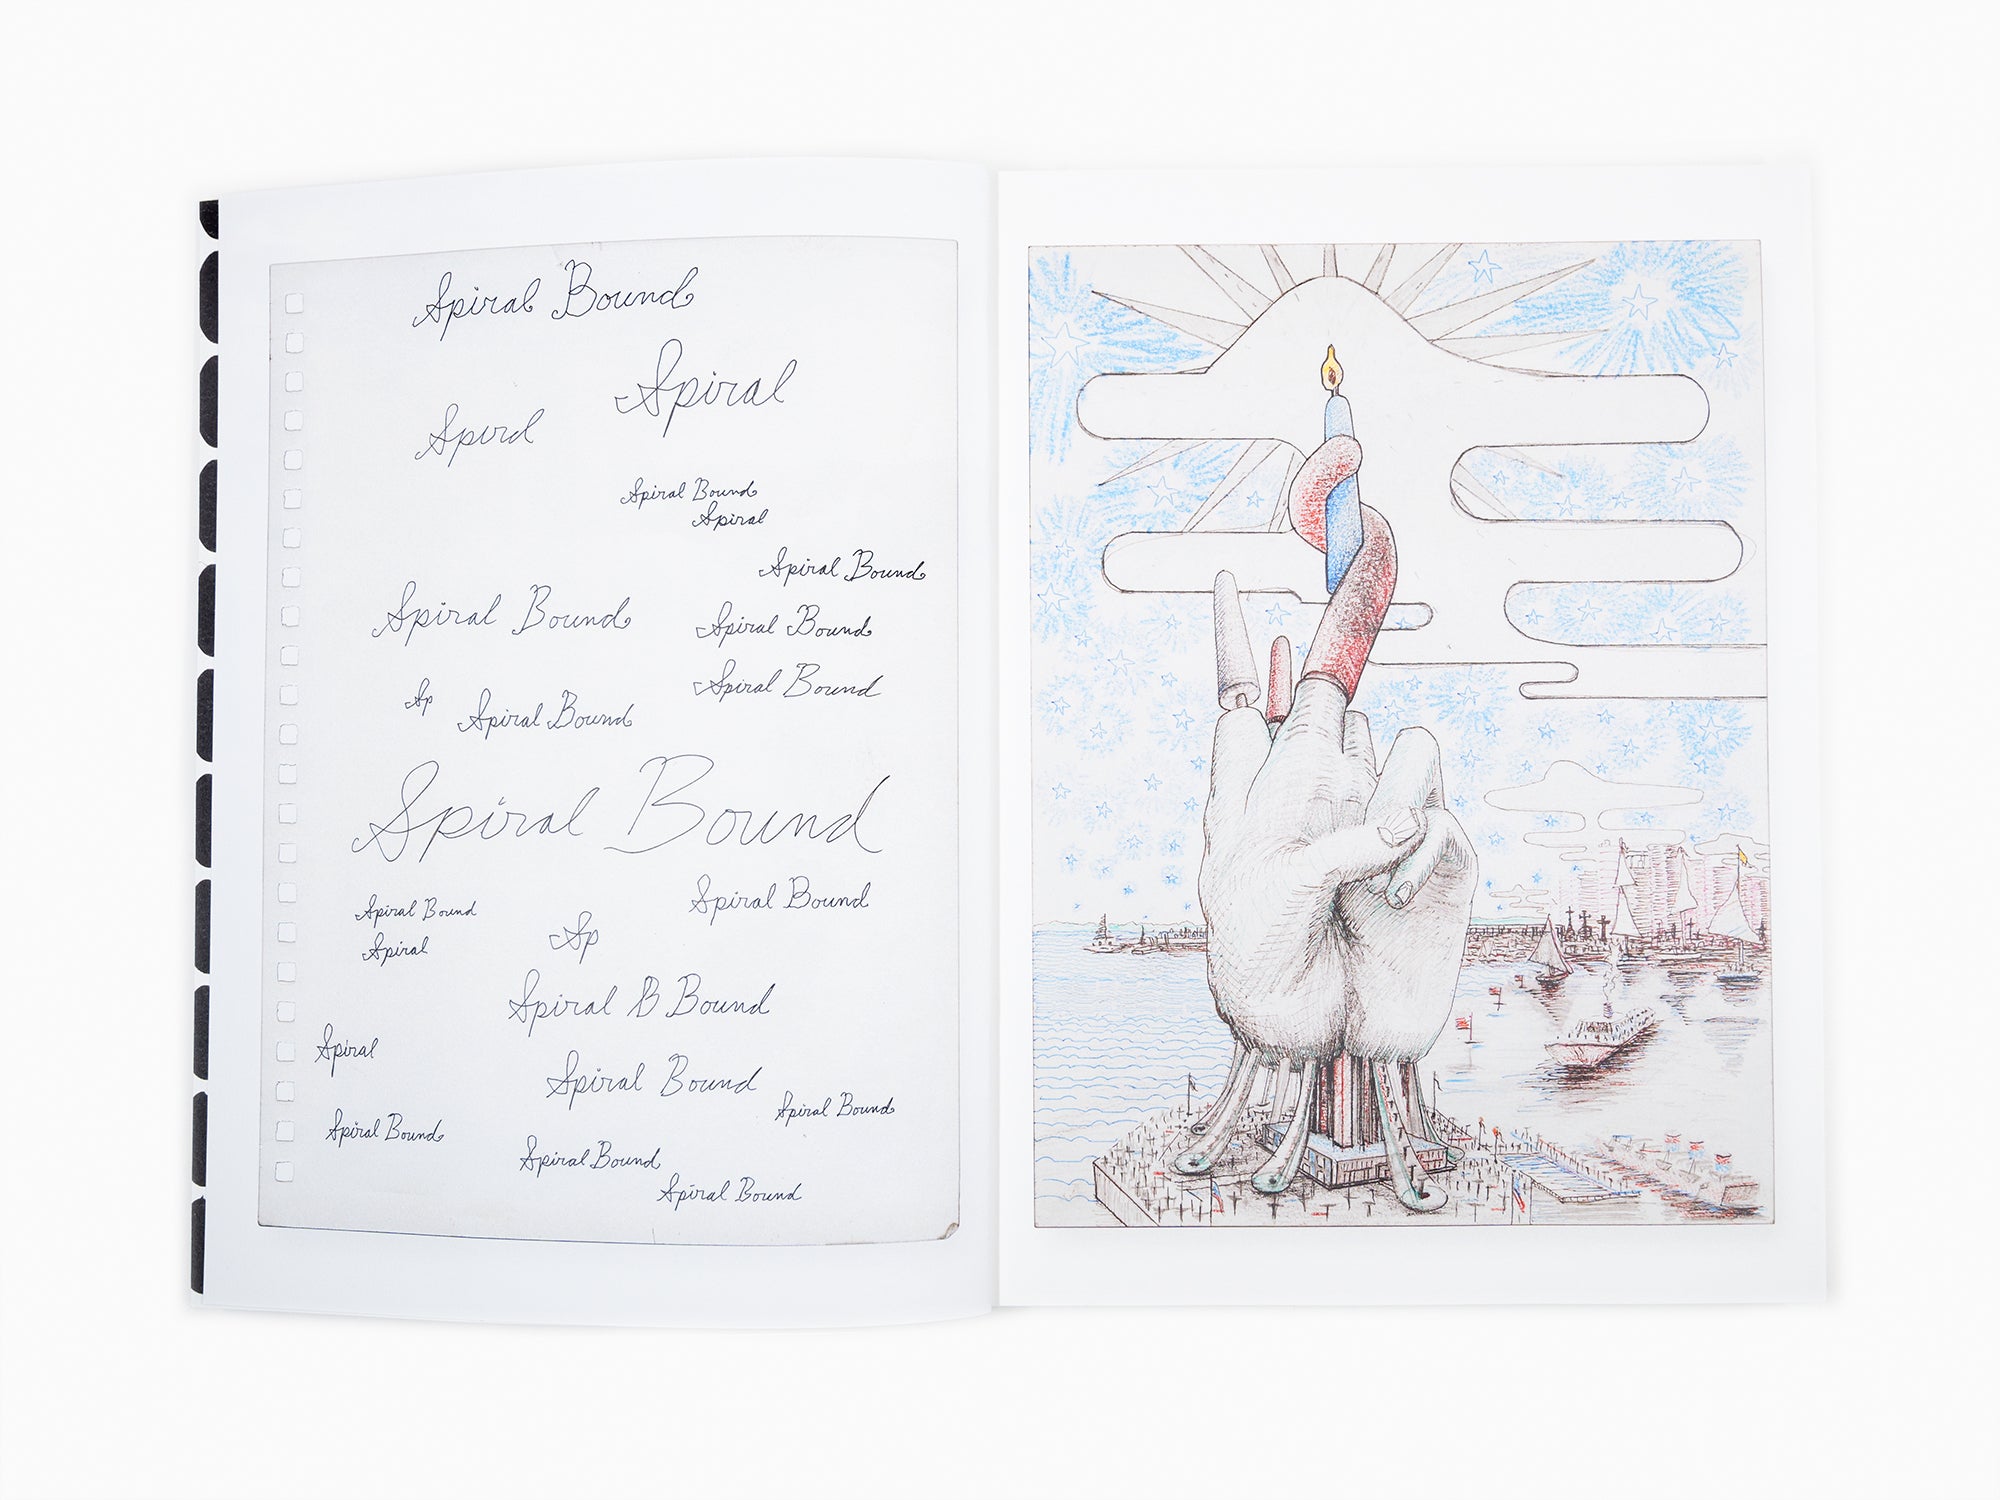 Spiral Bound
Spiral
Spirl
Spiral Bound
Spiral
Spiral Bound
Spiral Bound
Spiral Bound
Spiral Bound
Sp
Spiral Bound
Spiral Bound
Spiral Bound
Spiral Bound
Spiral
Sp
Spiral B Bound
Spiral
Spiral Bound
Spiral Bound
Spiral Bound
Spiral Bound
Spiral Bound